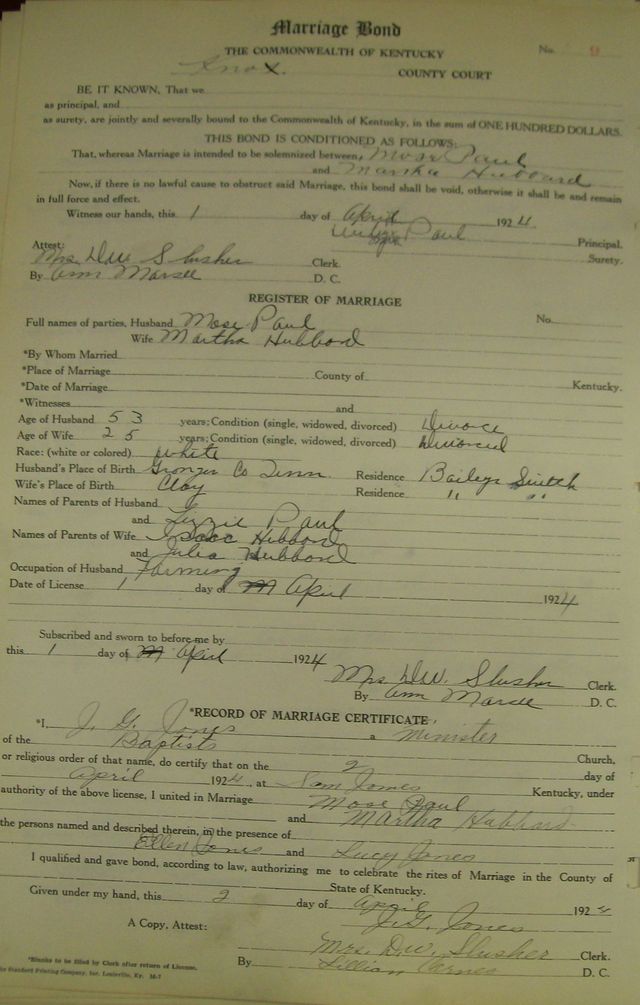 Marriage Bond
THE COMMONWEALTH OF KENTUCKY No. 9
Knox COUNTY COURT
BE IT KNOWN, That we
as principal, and
as surety, are jointly and severally bound to the Commonwealth of Kentucky, in the sum of ONE HUNDRED DOLLARS.
THIS BOND IS CONDITIONED AS FOLLOWS:
That, whereas Marriage is intended to be solemnized between Mose Paul
and Martha Hubbard
Now, if there is no lawful cause to obstruct said Marriage, this bond shall be void, otherwise it shall be and remain
in full force and effect.
Witness our hands, this 1 day of April 1924
Paul Principal.
Attest: Surety.
Mrs. D W Slusher Clerk.
By Ann Marsee D. C.
REGISTER OF MARRIAGE
Full names of parties, Husband Mose Paul No.
Wife Martha Hubbard
*By Whom Married
*Place of Marriage County of Kentucky.
*Date of Marriage
*Witnesses and
Age of Husband 53 years; Condition (single, widowed, divorced) Divorce
Age of Wife 25 years; Condition (single, widowed, divorced) Divorced
Race: (white or colored) white
Husband's Place of Birth Co Tenn. Residence Baileys
Wife's Place of Birth Clay Residence " "
Names of Parents of Husband
and Lizzie Paul
Names of Parents of Wife Isaac Hibbard
and Julia Hubbard
Occupation of Husband Farming
Date of License 1 day of April 1924
Subscribed and sworn to before me by
this 1 day of April 1924
Mrs DW. Slusher Clerk.
By Ann Marsee D. C.
*RECORD OF MARRIAGE CERTIFICATE
*I, J. G. Jones a Minister
of the Baptists Church,
or religious order of that name, do certify that on the 2 day of
April 1924, at Sam Jones Kentucky, under
authority of the above license, I united in Marriage Mose Paul
and Martha Hubbard
the persons named and described therein, in the presence of
Ellen Jones and Lucy Jones
I qualified and gave bond, according to law, authorizing me to celebrate the rites of Marriage in the County of
State of Kentucky.
Given under my hand, this 2 day of April 1924
J. G. Jones
A Copy, Attest:
Mrs. D.W. Slusher Clerk.
By Lillian Carnes D. C.
*Blanks to be filled by Clerk after return of License.
The Standard Printing Company, Inc. Louisville, Ky.